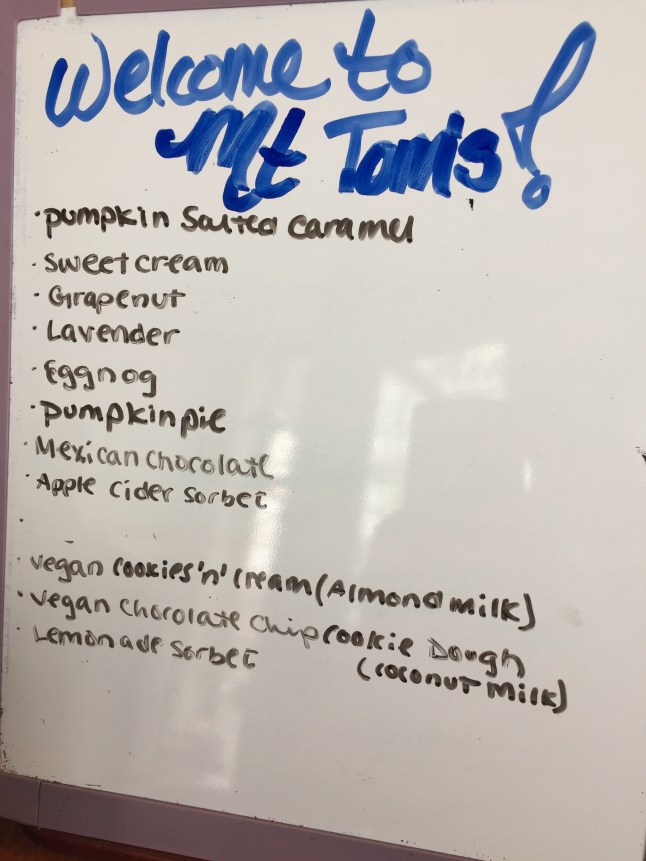 Welcome to
Mt Tom's!
·pumpkin Salted caramel
·sweet cream
·Grapenut
·Lavender
·Eggnog
·pumpkin pie
·Mexican chocolate
·Apple cider sorbet
·
·vegan cookies 'n' cream (Almond milk)
·vegan chocolate chip cookie Dough
(coconut milk)
·Lemonade sorbet